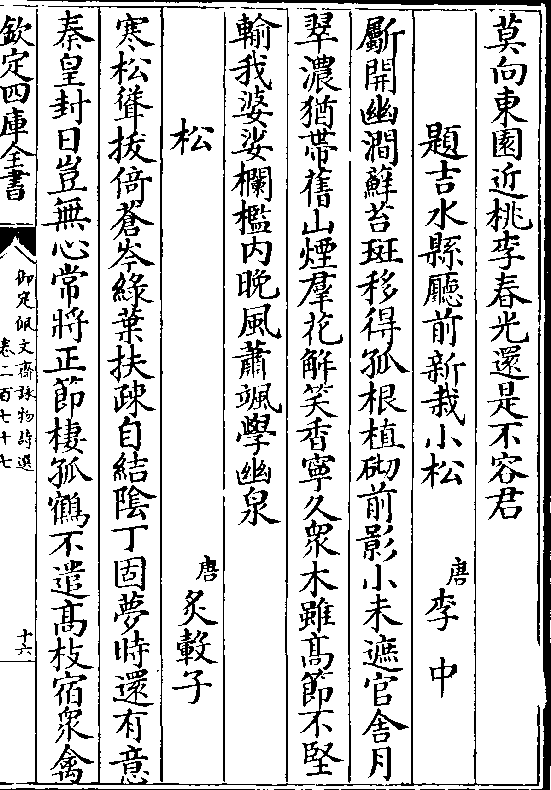 莫向東園近桃李春光還是不容君
題吉水縣㕔前新栽小松
唐李中
斸開幽澗蘚苔斑移得孤根植砌前影小未遮官舍月
翠濃猶帯舊山煙羣花解笑香寧久衆木雖髙節不堅
輸我婆娑欄檻内晚風蕭颯學幽泉
松
唐炙轂子
寒松聳拔倚蒼岑綠葉扶疎自結陰丁固夢時還有意
秦皇封日豈無心常將正節棲孤鶴不遣髙枝宿衆禽
欽定四庫全書
御定佩文齋詠物詩選
卷二百七十七
十六